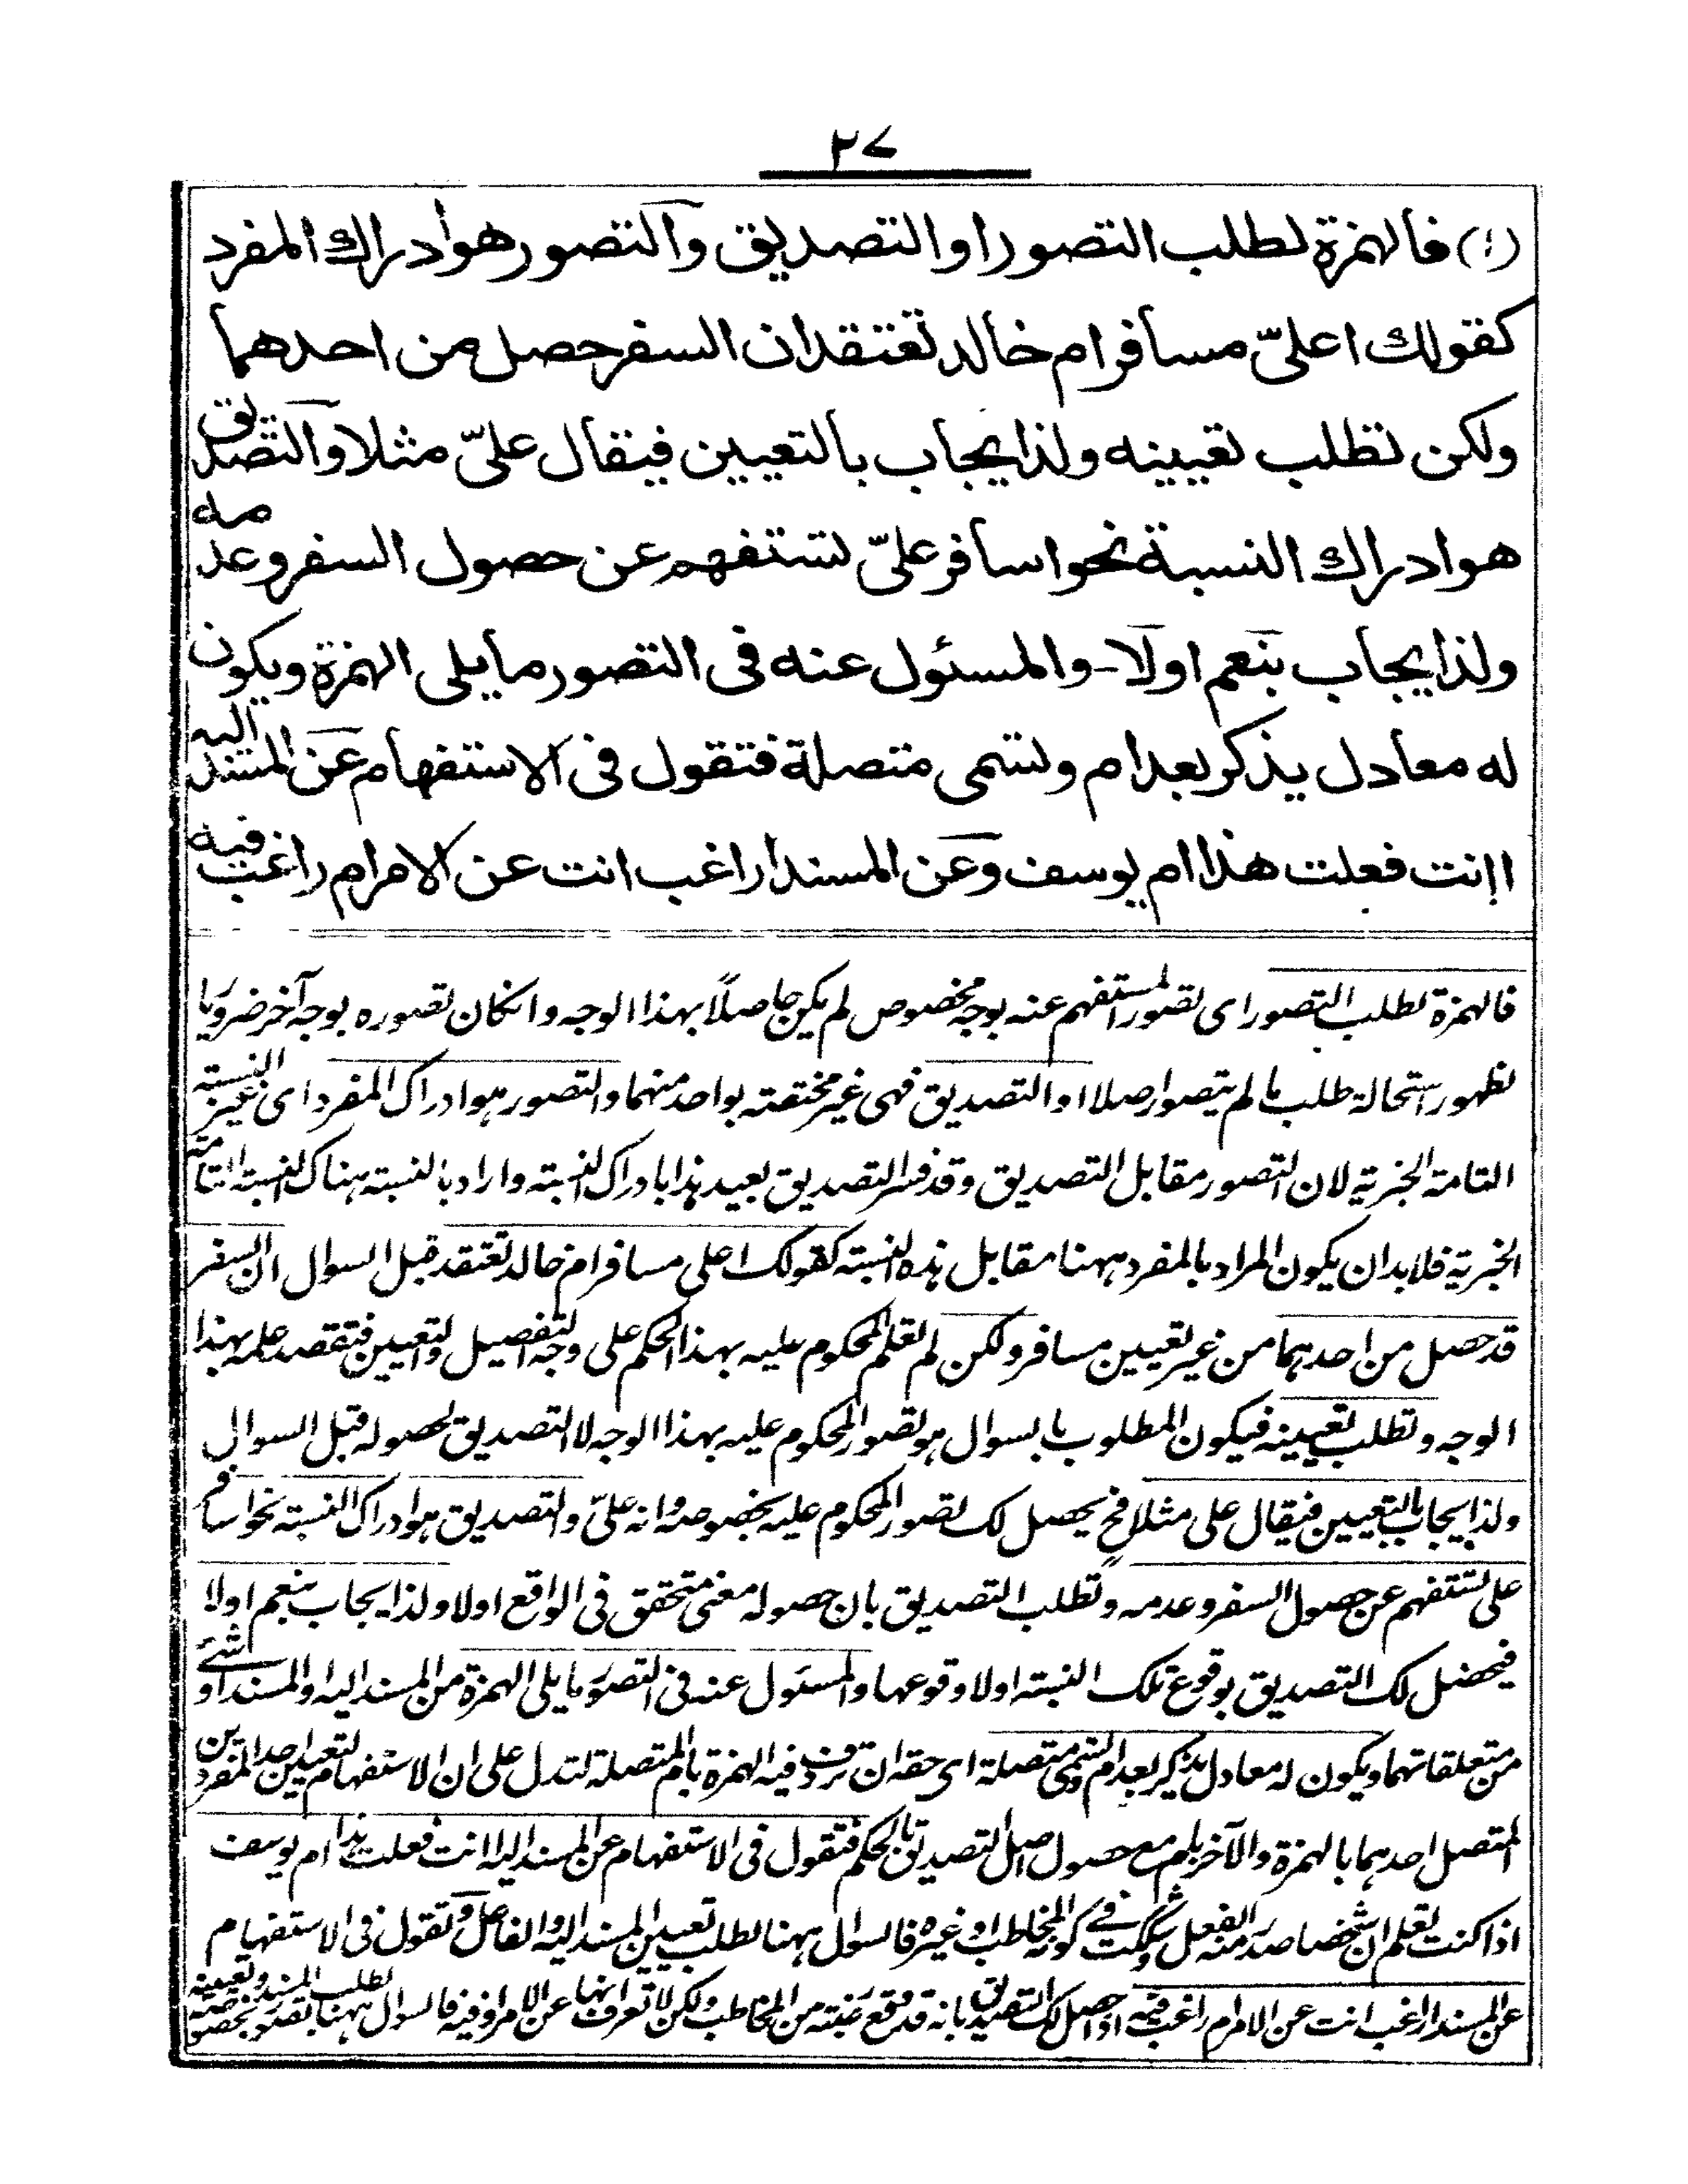 ٢٧
(١) فالهمزة لطلب التصور او التصديق والتصور هو ادراك المفرد
كقولك اعليّ مسافر ام خالد تعتقد ان السفر حصل من احدهما
ولكن تطلب تعيينه ولذا يجاب بالتعيين فيقال عليّ مثلا والتصديق
هو ادراك النسبة نحو اسافر عليّ تستفهم عن حصول السفر وعدمه
ولذا يجاب بنعم او لا۔ والمسئول عنه فى التصور ما يلى الهمزة ويكون
له معادل يذكر بعد ام وتسمى متصلة فتقول فى الاستفهام عن المسند اليه
اانت فعلت هذا ام يوسف وعن المسند اراغب انت عن الامر ام راغب فيه
فالهمزة لطلب التصور اى تصور المستفهم عنه بوجه مخصوص لم يكن حاصلاً بهذا الوجه وانكان تصوره بوجه آخر ضروريا
لظهور استحالة طلب ما لم يتصور اصلا او التصديق فهى غير مختصة بواحد منهما والتصور هو ادراك المفرد اى غير النسبة
التامة الخبرية لان التصور مقابل التصديق وقد فسر التصديق بعيد هذا بادراك النسبة واراد بالنسبة هناك النسبة التامة
الخبرية فلابد ان يكون المراد بالمفرد ههنا مقابل هذه النسبة كقولك اعلى مسافر ام خالد تعتقد قبل السوال ان السفر
قد حصل من احدهما من غير تعيين مسافر ولكن لم تعلم المحكوم عليه بهذا الحكم على وجه التفصيل والتعيين فتقصد علمه بهذا
الوجه وتطلب تعيينه فيكون المطلوب بالسوال هو تصور المحكوم عليه بهذا الوجه لا التصديق لحصوله قبل السوال
ولذا يجاب بالتعيين فيقال على مثلا فح يحصل لك تصور المحكوم عليه بخصوصه وانه عليّ والتصديق هو ادراك النسبة نحو اسافر
على تستفهم عن حصول السفر وعدمه وتطلب التصديق بان حصوله معنى متحقق فى الواقع اولا ولذا يجاب بنعم اولا
فيحصل لك التصديق بوقوع تلك النسبة اولا وقوعها والمسئول عنه فى التصور ما يلى الهمزة من المسند اليه والمسند او شئ
من متعلقاتهما ويكون له معادل يذكر بعد ام وتسمى متصلة اى حقه ان تردف فيه الهمزة بام المتصلة لتدل على ان الاستفهام لتعيين احد المفردين
المتصل احدهما بالهمزة والآخر بام مع حصول اصل التصديق بالحكم فتقول فى الاستفهام عن المسند اليه اانت فعلت هذا ام يوسف
اذا كنت تعلم ان شخصا صدر منه الفعل وشككت فى كونه المخاطب او غيره فالسوال ههنا لطلب تعيين المسند اليه والفاعل وتقول فى الاستفهام
عن المسند اراغب انت عن الامر ام راغب فيه اذا حصل لك التصديق بانه قد وقع رغبته من المخاطب ولكن لا تعرف انها عن الامر او فيه فالسوال ههنا لطلب المسند وتعيينه